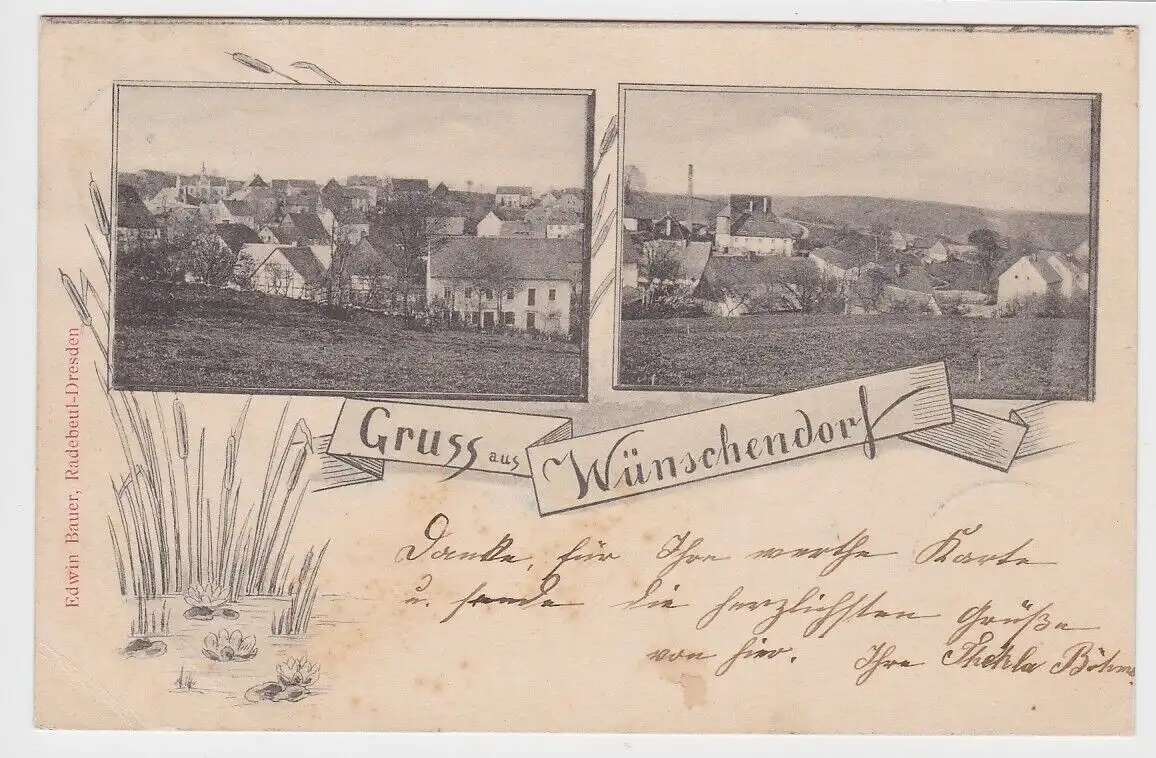 Gruss aus Wünschendorf
Danke, für Ihre werthe Karte
u. sende die herzlichsten Grüße
von hier. Ihre Thekla Böhme
Edwin Bauer, Radebeul-Dresden